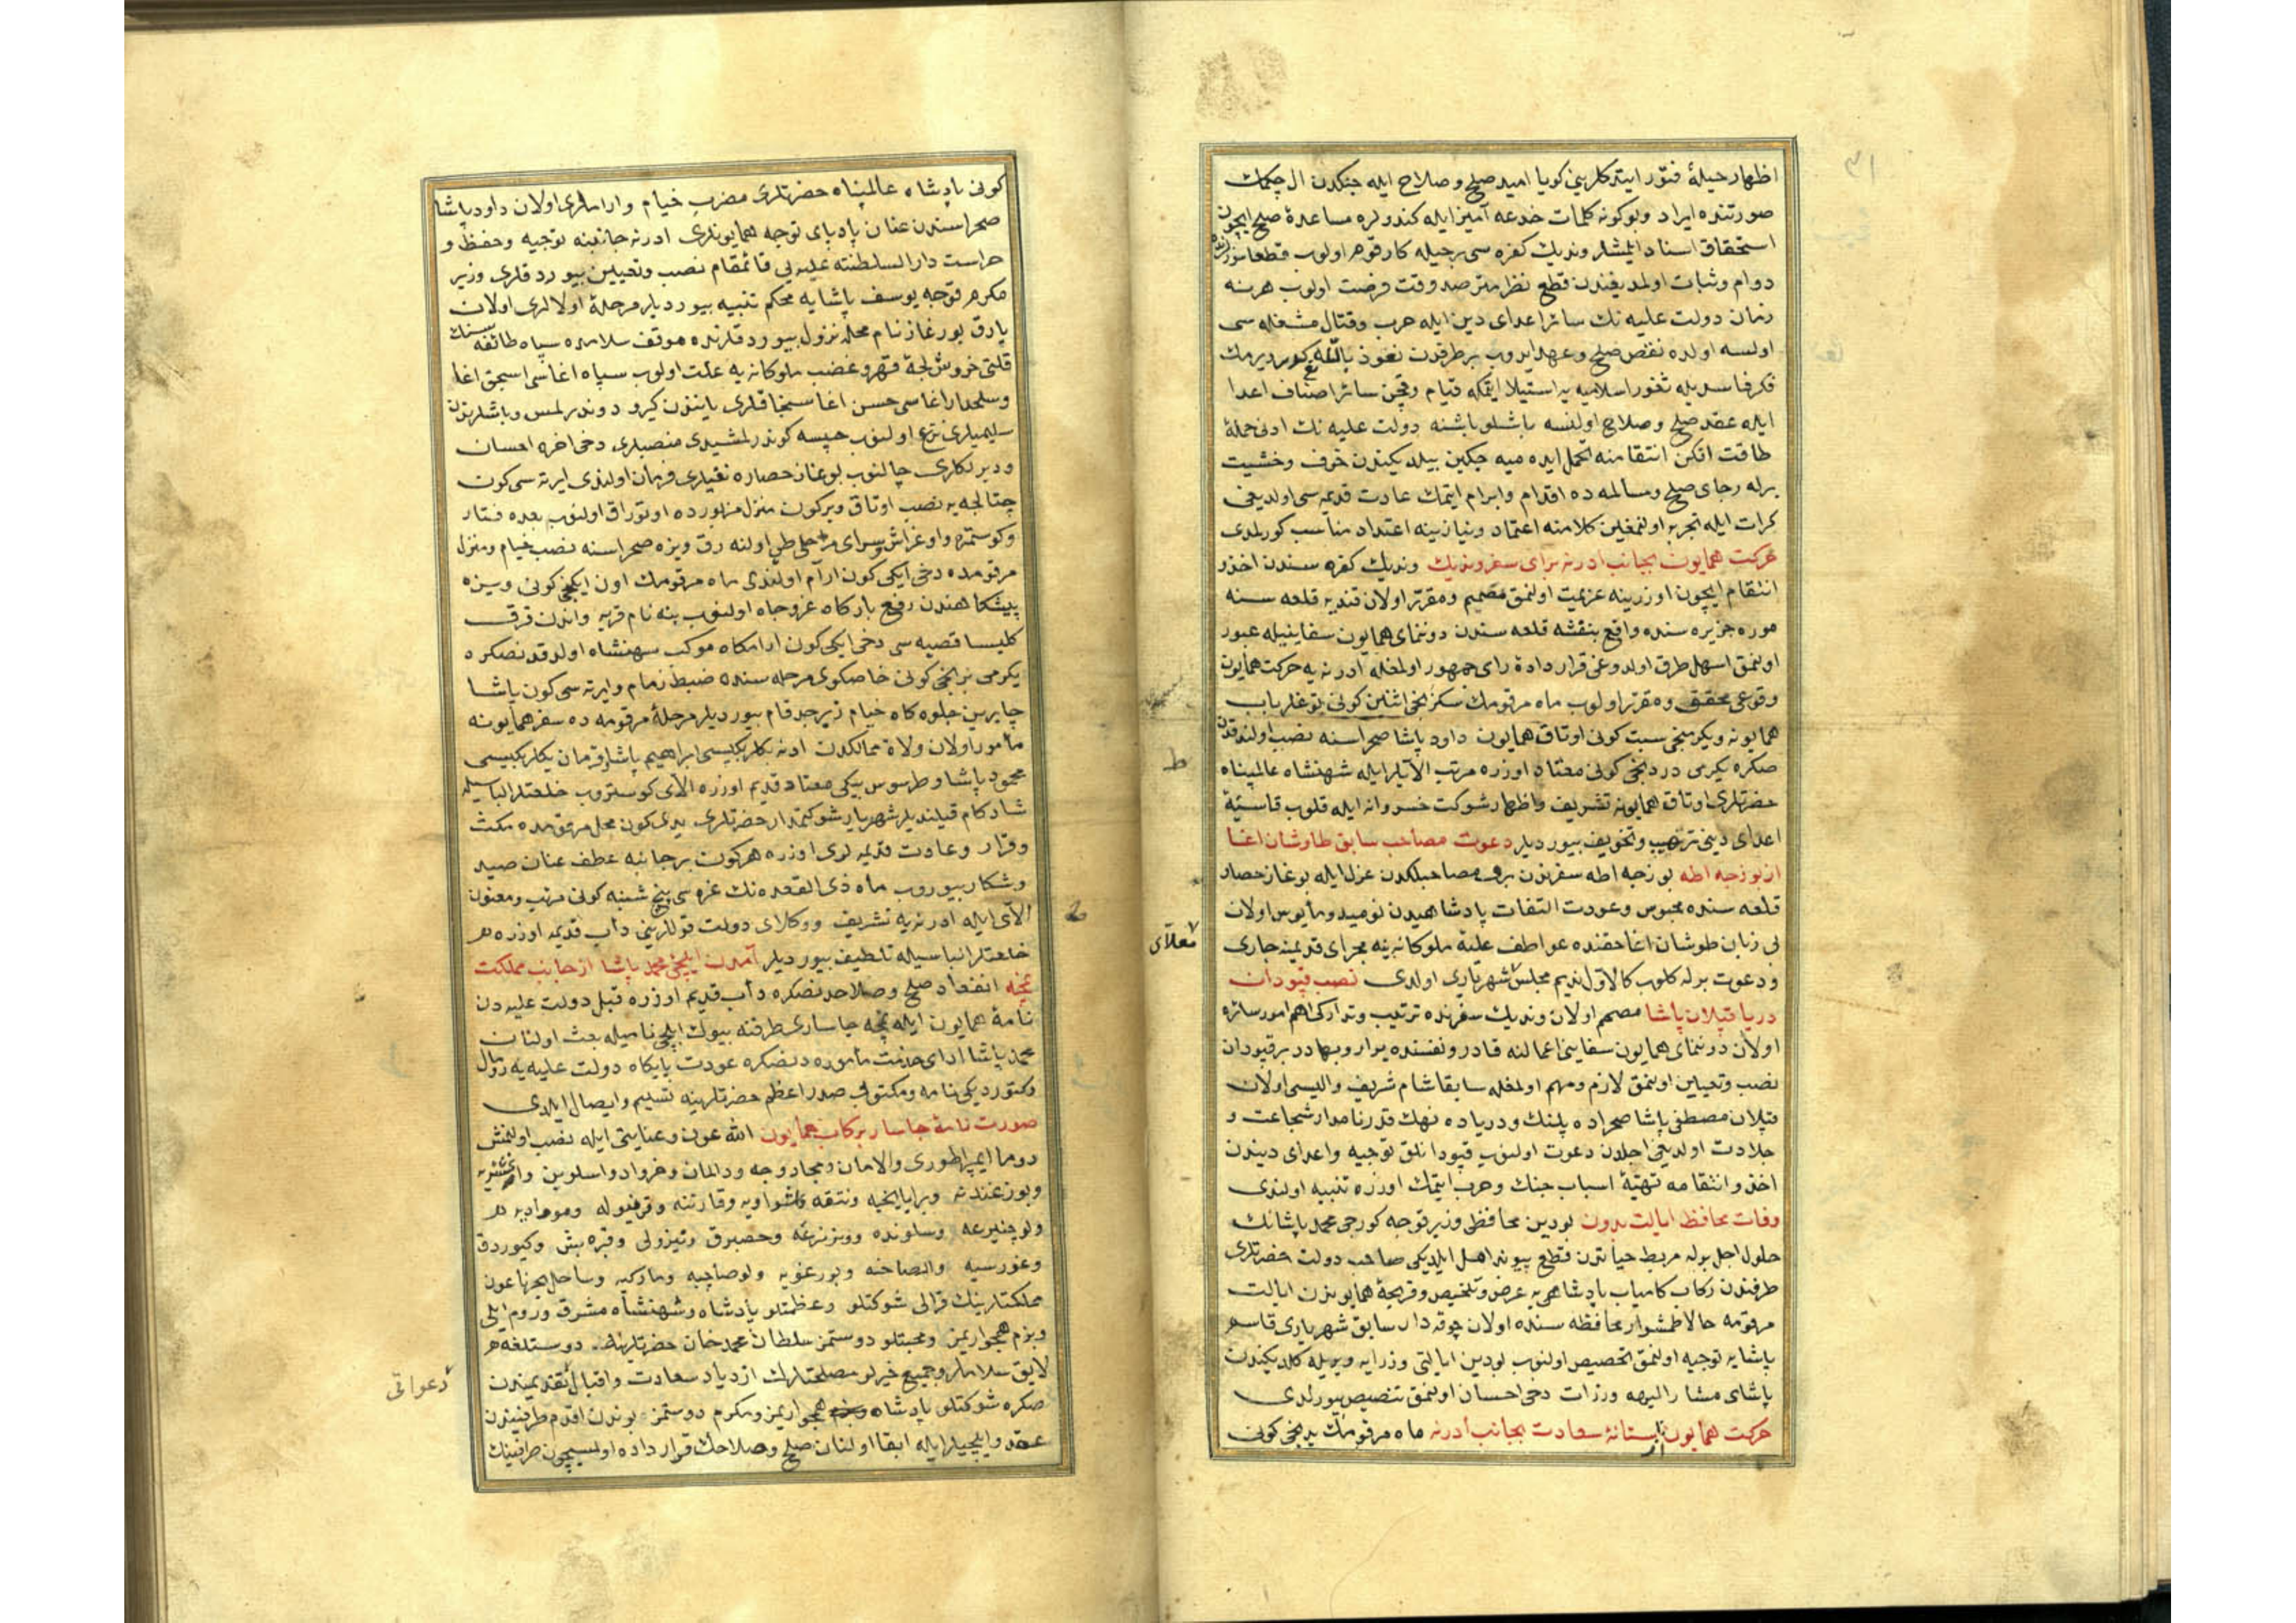 اظهار حیلۀ فتور ایتدکلرینی کویا امید صلح و صلاح ایله جنکدن ال چکمك
صورتنده ایراد وبو کونه کلمات خدعه آمیز ایله کندولره مساعدۀ صلح ایچون
استحقاق اسناد ایلمشلر وندیك کفره سی بر حیله کار قوم اولوب قطعا سوزلرنده
دوام وثبات اولمدیغندن قطع نظر مترصد وقت فرصت اولوب هر نه
زمان دولت علیه نك سائر اعدای دین ایله حرب وقتال مشغله سی
اولسه اولده نقض صلح وعهد ایدوب بر طرفدن نعوذ بالله تعالی کدر ویرمك
فکر فاسدیله ثغور اسلامیه یه استیلا ایتمکه قیام وقچن سائر اصناف اعدا
ایله عقد صلح وصلاح اولنسه باشلو باشنه دولت علیه نك ادنی حملۀ
طاقت افکن انتقامنه تحمل ایده میه جکین بیلدیکندن خوف وخشیت
برله رجای صلح ومسالمه ده اقدام وابرام ایتمك عادت قدیمه سی اولدیغی
کرات ایله تجربه اولنمغلین کلامنه اعتماد ونیازینه اعتداد مناسب کورلمدی
حرکت همایون بجانب ادرنه برای سفر وندیك وندیك کفره سندن اخذ و
انتقام ایچون اوزرینه عزیمت اولنمق مصمم ومقرر اولان قندیه قلعه سنه
موره جزیره سنده واقع بنفشه قلعه سندن دوننمای همایون سفاینیله عبور
اولنمق اسهل طرق اولدوغی قرار دادۀ رای جمهور اولمغله ادرنه یه حرکت همایون
وقوعی محقق ومقرر اولوب ماه مرقومك سکزنجی اثنین کونی توغلر باب
همایونه ویکرمنجی سبت کونی اوتاق همایون داود پاشا صحراسنه نصب اولندقدن
صکره یکرمی دردنجی کونی معتاد اوزره مرتب الایلر ایله شهنشاه عالمپناه
حضرتلری اوتاق همایونه تشریف واظهار شوکت خسروانه ایله قلوب قاسیۀ
اعدای دینی ترهیب وتخویف بیوردیلر دعوت مصاحب سابق طاوشان اغا
از بوزجه اطه بوزجه اطه سفرندن برو مصاحبلکدن عزل ایله بوغاز حصار
قلعه سنده محبوس وعودت التفات پادشاهیدن نومید ومأیوس اولان
بی زبان طوشان اغا حقنده عواطف علیۀ ملوکانه ینه مجرای قدیمنه جاری
ودعوت برله کلوب کالاول ندیم مجلس شهریاری اولدی نصب قپودان
دریا قپلان پاشا مصمم اولان وندیك سفرنده ترتیب وتدارکی اهم امور سائره
اولان دوننمای همایون سفاینی اعمالنه قادر ونفسنده یرار وبهادر بر قپودان
نصب وتعیین اولنمق لازم ومهم اولمغله سابقا شام شریف والیسی اولان
قپلان مصطفی پاشا صحراده پلنك ودریاده نهنك قدر نامدار شجاعت و
جلادت اولدیغی اجلدن دعوت اولنوب قپودانلق توجیه واعدای دیندن
اخذ وانتقامه تهیئۀ اسباب جنك وحرب ایتمك اوزره تنبیه اولندی
وفات محافظ ایالت بدون بودین محافظی وزیر قوجه کورجی محمد پاشانك
حلول اجل بوله مربط حیاتدن قطع پیوند امل ایلدیکی صاحب دولت حضرتلری
طرفندن رکاب کامیاب پادشاهی یه عرض وتلخیص وقریحۀ همایوندن ایالت
مرقومه حالا طمشوار محافظه سنده اولان چوقه دار سابق شهریاری قاسم
پاشایه توجیه اولنمق تخصیص اولنوب بودین ایالتی وزرایه ویریله کلدیکندن
پاشای مشار الیهه وزارت دخی احسان اولنمق تنصیص بیورلدی
حرکت همایون از آستانۀ سعادت بجانب ادرنه ماه مرقومك یدنجی کونی
معلای
کونی پادشاه عالمپناه حضرتلری مضرب خیام وارامکاه اولان داود پاشا
صحراسندن عنان بادپای توجه همایونلری ادرنه جانبنه توجیه وحفظ و
حراست دار السلطنته علیه یی قائمقام نصب وتعیین بیوردقلری وزیر
مکرم قوجه یوسف پاشایه محکم تنبیه بیوردیلر مرحلۀ اولالری اولان
یارق بورغاز نام محله نزول بیوردقلرنده موقف سلامده سپاه طائفه سنك
قلتی خروش لجۀ قهر وغضب ملوکانه یه علت اولوب سپاه اغاسی اسبجق اغا
وسلحدار اغاسی حسن اغا سنجاقلری یانندن کیرو دوندرلمس وباشلرندن
سلیمیلری نزع اولنوب حپسه کوندرلمشیدی منصبلری دخی اخره احسان
ودیرلکلری چالنوب بوغاز حصاره نفیلری فرمان اولندی ایرته سی کون
چتالجه یه نصب اوتاق وبر کون منزل مزبورده اوتوراق اولنوب بعده فنار
وکوستمزه واوغراش وسرای مراحلی طی اولنه رق ویزه صحراسنه نصب خیام ومنزل
مرقومده دخی ایکی کون ارام اولندی ماه مرقومك اون ایکنجی کونی ویزه
پیشکاهندن رفع بارکاه عز وجاه اولنوب ینه نام قریه واندن قرق
کلیسا قصبه سی دخی ایکی کون ارامکاه موکب شهنشاه اولدقدنصکره
یکرمی برنجی کونی خاصکوی مرحله سنده ضبط زمام وایرته سی کون پاشا
چایرین جلوه کاه خیام زبرجد فام بیوردیلر مرحلۀ مرقومه ده سفر همایونه
مأمور اولان ولاة ممالکدن ادنه بکلربکیسی ابراهیم پاشا وقرمان بکلربکیسی
محمود پاشا وطرسوس بیکی معتاد قدیم اوزره الای کوستروب خلعتلر الباسیله
شادکام قیلندیلر شهریار شوکتمدار حضرتلری یدی کون محل مرقومده مکث
وقرار وعادت قدیمه لری اوزره هر کون بر جانبه عطف عنان صید
وشکار بیوروب ماه ذی القعده نك غره سی پنج شنبه کونی مرتب ومعنون
الای ایله ادرنه یه تشریف ووکلای دولت قوللرینی دأب قدیم اوزره هم
خلعتلر الباسیله تلطیف بیوردیلر آمدن ایلچی محمد پاشا از جانب مملکت
نمچه انعقاد صلح وصلاحدنصکره دأب قدیم اوزره قبل دولت علیه دن
نامۀ همایون ایله نمچه چاساری طرفنه بیوك ایلچی نامیله بعث اولنان
محمد پاشا ادای خدمت مأموره دنصکره عودت بایکاه دولت علیه یه رومال
وکتوردیکی نامه ومکتوب صدر اعظم حضرتلرینه تسلیم وایصال ایلدی
صورت نامۀ چاسار برکاب همایون الله عون وعنایتی ایله نصب اولنمش
روما ایمپراطوری والامان ومجار وچه ودالمان وخروادو اسلوین
مملکتلرینك قرالی شوکتلو وعظمتلو پادشاه وشهنشاه مشرق وروم ایلی
وبزم همجواریمز ومحبتلو دوستمز سلطان محمد خان حضرتلرینه دوستلغه هم
لایق سلاملر وجمیع خیرلو مصلحتلرك ازدیاد سعادت واقبال تقدیمندن
صکره شوکتلو پادشاه همجواریمز ومکرم دوستمز بوندن اقدم طرفیندن
عقد وایلچیلر ایله ابقا اولنان صلح وصلاحك قرار داده اولمسیچون طرفینك
دعواتی